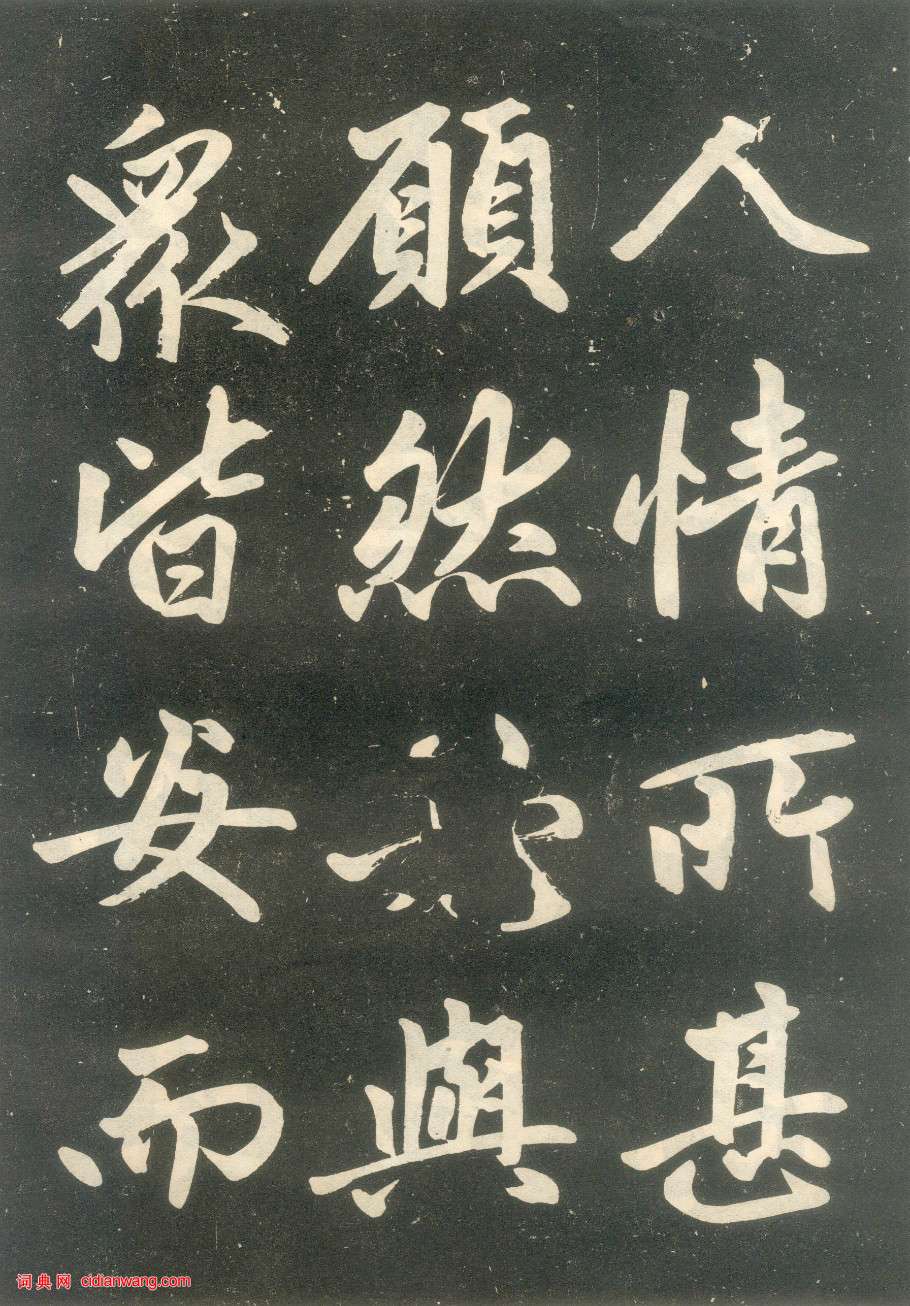 人情所甚
願然與
眾皆安而
词典网 cidianwang.com